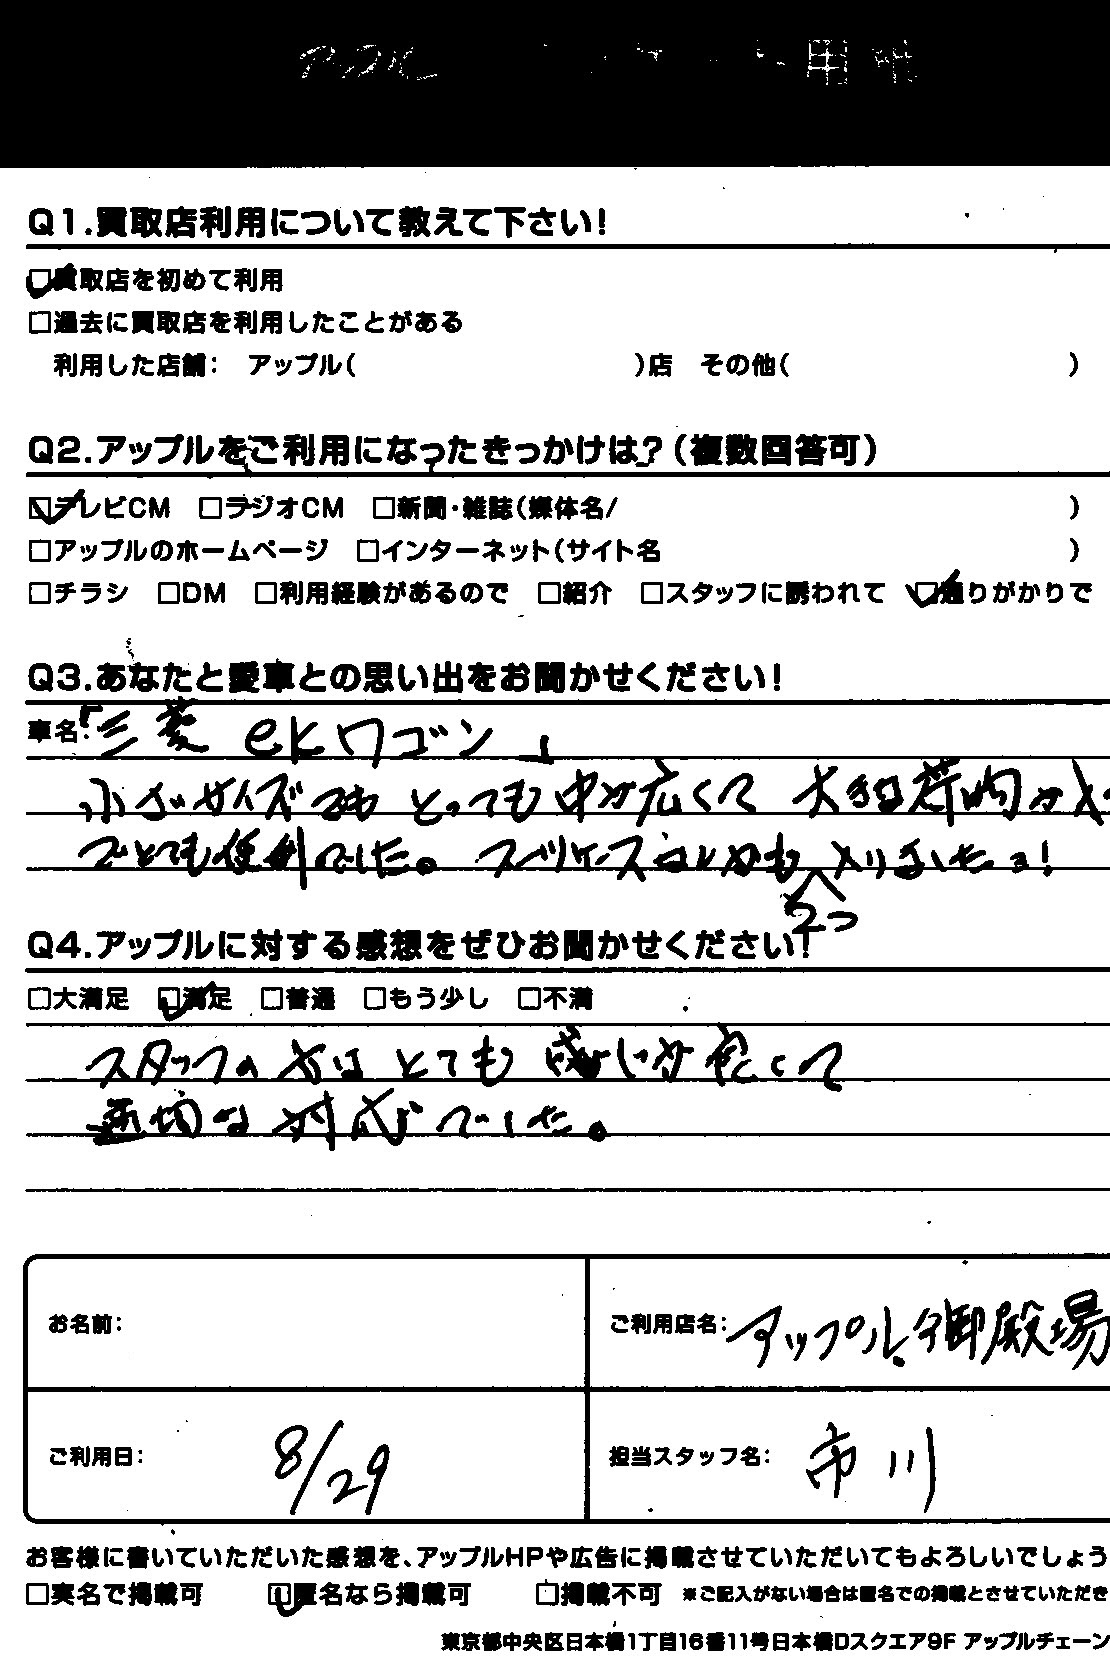 アップル 用
Q1.買取店利用について教えて下さい!
☑買取店を初めて利用
□過去に買取店を利用したことがある
利用した店舗: アップル( )店 その他( )
Q2.アップルをご利用になったきっかけは?(複数回答可)
☑テレビCM □ラジオCM □新聞・雑誌(媒体名/ )
□アップルのホームページ □インターネット(サイト名 )
□チラシ □DM □利用経験があるので □紹介 □スタッフに誘われて ☑通りがかりで
Q3.あなたと愛車との思い出をお聞かせください!
車名:「三菱 ekワゴン」
小さいサイズでも とっても中が広くて 大きな荷物が入
でとても便利でした。スーツケースなんかも 入りましたョ!
2つ
Q4.アップルに対する感想をぜひお聞かせください!
□大満足 ☑満足 □普通 □もう少し □不満
スタッフの方は とても 感じが良くて
適切な対応でした。
お名前:
ご利用店名: アップル 御殿場
ご利用日: 8/29
担当スタッフ名: 市川
お客様に書いていただいた感想を、アップルHPや広告に掲載させていただいてもよろしいでしょう
□実名で掲載可 ☑匿名なら掲載可 □掲載不可 ※ご記入がない場合は匿名での掲載とさせていただき
東京都中央区日本橋1丁目16番11号日本橋Dスクエア9F アップルチェーン